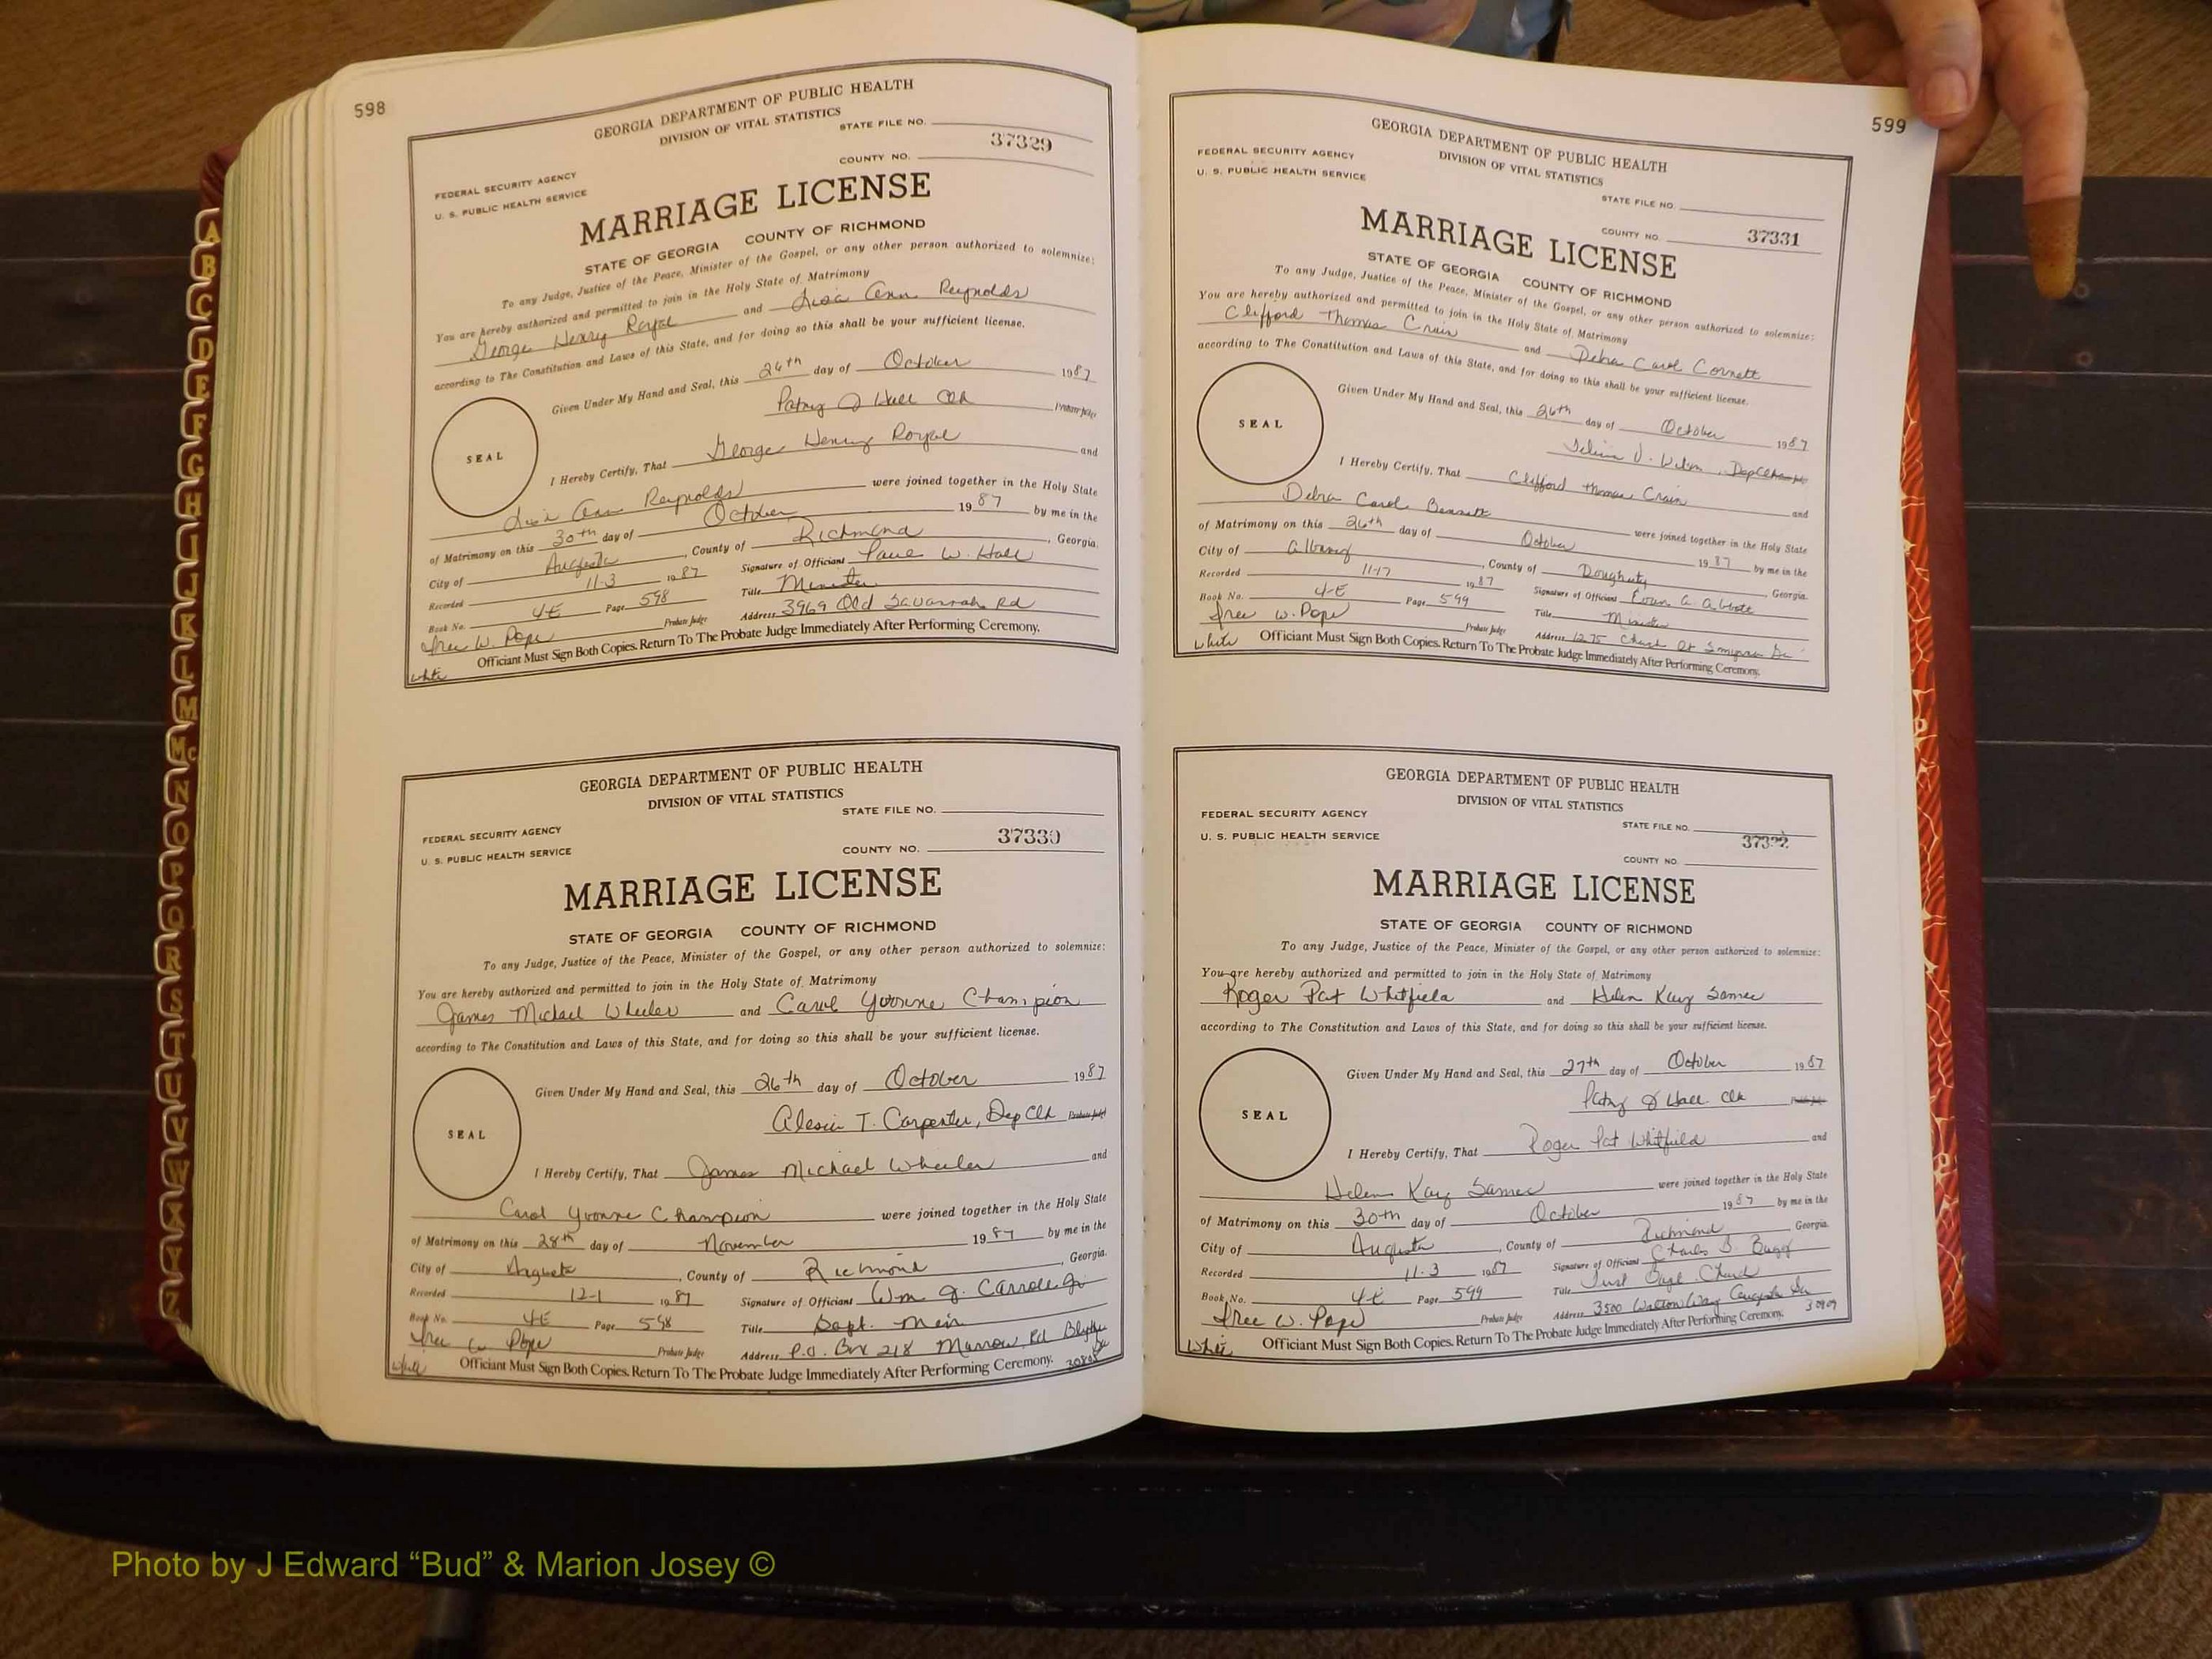 598
GEORGIA DEPARTMENT OF PUBLIC HEALTH
DIVISION OF VITAL STATISTICS
STATE FILE NO.
37329
COUNTY NO.
FEDERAL SECURITY AGENCY
U. S. PUBLIC HEALTH SERVICE
MARRIAGE LICENSE
STATE OF GEORGIA COUNTY OF RICHMOND
To any Judge, Justice of the Peace, Minister of the Gospel, or any other person authorized to solemnize:
You are hereby authorized and permitted to join in the Holy State of Matrimony
George Henry Royal and Lisa Ann Reynolds
according to The Constitution and Laws of this State, and for doing so this shall be your sufficient license.
Given Under My Hand and Seal, this 26th day of October 1987
Patsy J Hall Clk Probate Judge
SEAL
I Hereby Certify, That George Henry Royal and
Lisa Ann Reynolds were joined together in the Holy State
of Matrimony on this 30th day of October 1987 by me in the
City of Augusta, County of Richmond, Georgia.
Recorded 11-3 1987 Signature of Officiant Paul W. Hall
Book No. 4E Page 598 Title Minister
Isaac W. Pope Probate Judge Address 3969 Old Savannah Rd
Officiant Must Sign Both Copies. Return To The Probate Judge Immediately After Performing Ceremony.
white
GEORGIA DEPARTMENT OF PUBLIC HEALTH
DIVISION OF VITAL STATISTICS
STATE FILE NO.
37330
COUNTY NO.
FEDERAL SECURITY AGENCY
U. S. PUBLIC HEALTH SERVICE
MARRIAGE LICENSE
STATE OF GEORGIA COUNTY OF RICHMOND
To any Judge, Justice of the Peace, Minister of the Gospel, or any other person authorized to solemnize:
You are hereby authorized and permitted to join in the Holy State of Matrimony
James Michael Wheeler and Carol Yvonne Champion
according to The Constitution and Laws of this State, and for doing so this shall be your sufficient license.
Given Under My Hand and Seal, this 26th day of October 1987
Alesia T. Carpenter, Dep Clk Probate Judge
SEAL
I Hereby Certify, That James Michael Wheeler and
Carol Yvonne Champion were joined together in the Holy State
of Matrimony on this 28th day of November 1987 by me in the
City of Augusta, County of Richmond, Georgia.
Recorded 12-1 1987 Signature of Officiant Wm J. Carroll Jr
Book No. 4E Page 598 Title Bapt. Min
W Pope Probate Judge Address P.O. Box 218 Morrow Rd Blythe Ga
white Officiant Must Sign Both Copies. Return To The Probate Judge Immediately After Performing Ceremony. 30805
599
GEORGIA DEPARTMENT OF PUBLIC HEALTH
DIVISION OF VITAL STATISTICS
FEDERAL SECURITY AGENCY
U. S. PUBLIC HEALTH SERVICE
STATE FILE NO.
COUNTY NO. 37331
MARRIAGE LICENSE
STATE OF GEORGIA COUNTY OF RICHMOND
To any Judge, Justice of the Peace, Minister of the Gospel, or any other person authorized to solemnize:
You are hereby authorized and permitted to join in the Holy State of Matrimony
Clifford Thomas Crain and Debra Carol Cornett
according to The Constitution and Laws of this State, and for doing so this shall be your sufficient license.
Given Under My Hand and Seal, this 26th day of October 1987
Dep Clk
SEAL
I Hereby Certify, That Clifford Thomas Crain and
Debra Carol were joined together in the Holy State
of Matrimony on this 26th day of October 1987 by me in the
City of Albany, County of Dougherty, Georgia
Recorded 11-17 1987 Signature of Officiant Abbott
Book No. 4-E Page 599 Title Minister
W. Pope Probate Judge Address 1275 Church St Smyrna Ga
White Officiant Must Sign Both Copies. Return To The Probate Judge Immediately After Performing Ceremony.
GEORGIA DEPARTMENT OF PUBLIC HEALTH
DIVISION OF VITAL STATISTICS
FEDERAL SECURITY AGENCY
U. S. PUBLIC HEALTH SERVICE
STATE FILE NO.
COUNTY NO.
MARRIAGE LICENSE
STATE OF GEORGIA COUNTY OF RICHMOND
To any Judge, Justice of the Peace, Minister of the Gospel, or any other person authorized to solemnize:
You are hereby authorized and permitted to join in the Holy State of Matrimony
Roger Pat Whitfield and Helen Kay
according to The Constitution and Laws of this State, and for doing so this shall be your sufficient license.
Given Under My Hand and Seal, this 27th day of October 1987
Patsy J Hall Clk
SEAL
I Hereby Certify, That Roger Pat Whitfield and
Helen Kay were joined together in the Holy State
of Matrimony on this 30th day of October 1987 by me in the
City of Augusta, County of Richmond Georgia
Recorded 11-3 1987 Signature of Officiant Charles B. Bugg
Book No. 4E Page 599 Title First Bapt. Church
W. Pope Probate Judge Address 3500 Walton Way Augusta Ga 30909
White Officiant Must Sign Both Copies. Return To The Probate Judge Immediately After Performing Ceremony.
A
B
C
D
E
F
G
H
I
J
K
L
M
MC
N
O
P
Q
R
S
T
U
V
W
X
Y
Z
Photo by J Edward “Bud” & Marion Josey ©